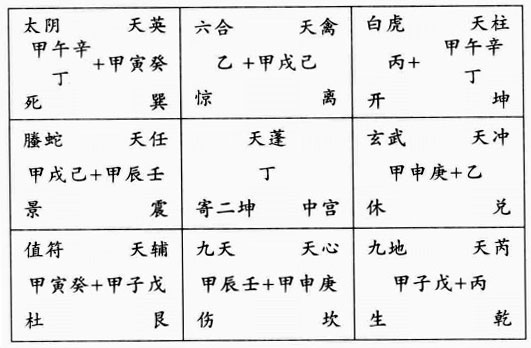 太阴 天英
甲午辛
丁 +甲寅癸
死 巽
六合 天禽
乙 +甲戌己
惊 离
白虎 天柱
丙+ 甲午辛
丁
开 坤
螣蛇 天任
甲戌己+甲辰壬
景 震
天蓬
丁
寄二坤 中宫
玄武 天冲
甲申庚+乙
休 兑
值符 天辅
甲寅癸+甲子戊
杜 艮
九天 天心
甲辰壬+甲申庚
伤 坎
九地 天芮
甲子戊+丙
生 乾